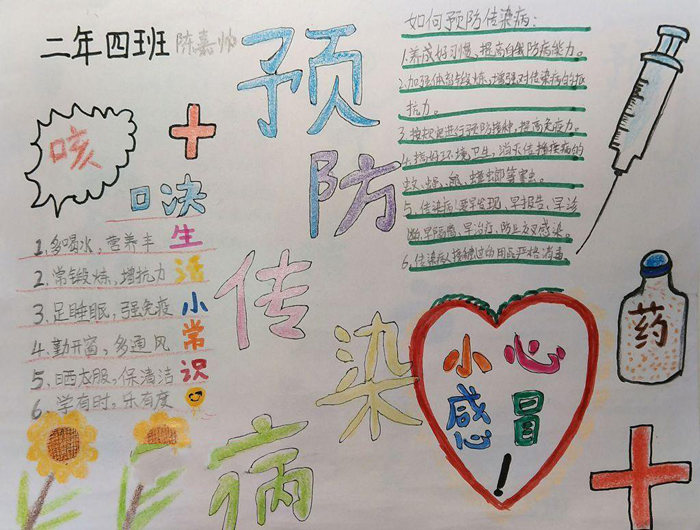 二年四班 陈嘉帅
预防传染病
咳
口决
生活小常识
1.多喝水,营养丰
2.常锻炼,增抗力
3.足睡眠,强免疫
4.勤开窗,多通风
5.晒衣服,保清洁
6.学有时,乐有度
如何预防传染病:
1.养成好习惯,提高自我防病能力。
2.加强体育锻炼,增强对传染病的抵
抗力。
3.按规定进行预防接种,提高免疫力。
4.搞好环境卫生,消灭传播疾病的
蚊、蝇、鼠、蟑螂等害虫。
5.传染病要早发现,早报告,早诊
断,早隔离,早治疗,防止交叉感染。
6.传染病人接触过的用品严格消毒
药
小心
感冒
!